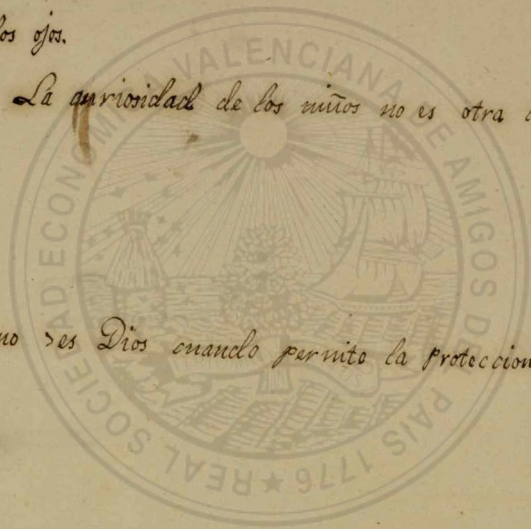 los ojos.
La quriosidad de los niños no es otra
no es Dios cuando permite la Proteccion
REAL SOCIEDAD ECONOMICA VALENCIANA DE AMIGOS DEL PAIS 1776